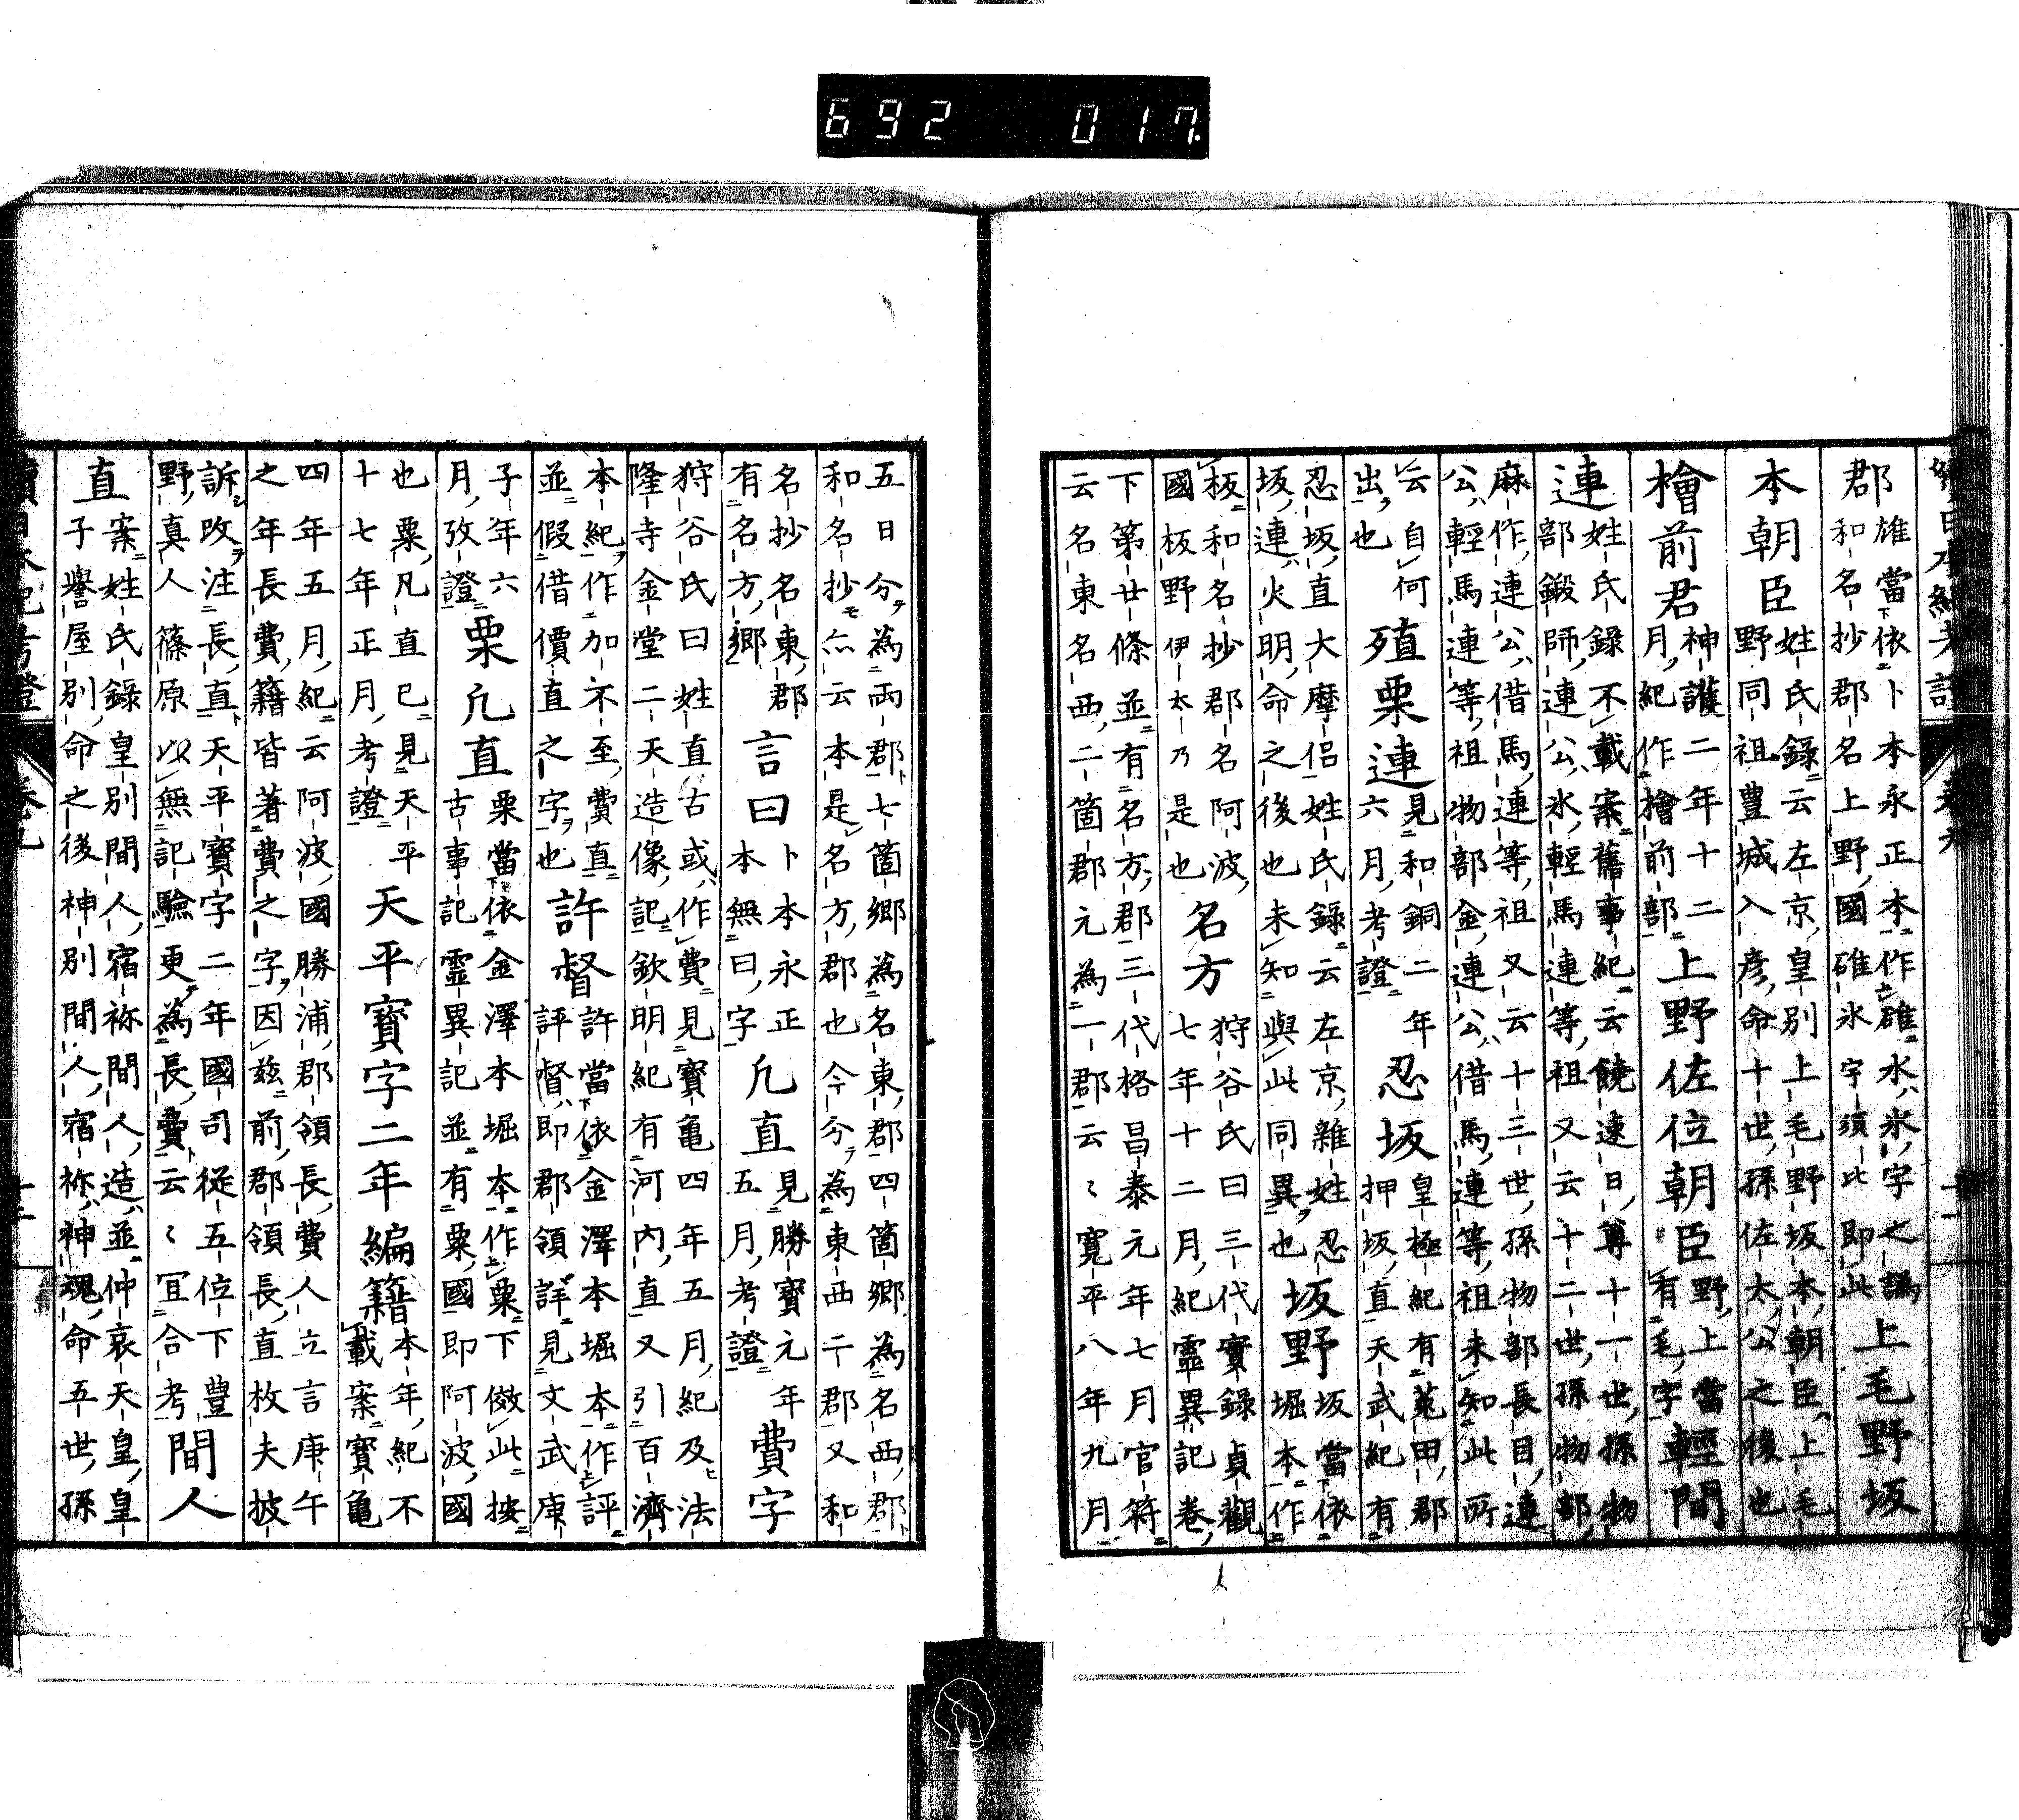 692 017
郡
雄當依卜本永正本作碓水氷字之譌
和名抄郡名上野國碓氷字須比即此
上毛野坂
本朝臣
姓氏錄云左京皇別上毛野坂本朝臣上毛
野同祖豊城入彦命十世孫佐太公之後也
檜前君
神護二年十二
月紀作檜前部
上野佐位朝臣
野上當
有毛字
輕間
連
姓氏錄不載案舊事紀云饒速日尊十一世孫物
部鍛師連公氷輕馬連等祖又云十二世孫物部
麻作連公借馬連等祖又云十三世孫物部長目連
公輕馬連等祖物部金連公借馬連等祖未知此所
云自何
出也
殖栗連
見和銅二年
六月考證
忍坂
皇極紀有菟田郡
押坂直天武紀有
忍坂直大摩侶姓氏錄云左京雜姓忍
坂連火明命之後也未知與此同異也
坂野
坂當依
堀本作
板和名抄郡名阿波
國板野伊太乃是也
名方
狩谷氏曰三代實錄貞觀
七年十二月紀靈異記卷
下第廿條並有名方郡三代格昌泰元年七月官符
云名東名西二箇郡元為一郡云〻寛平八年九月
五日分為兩郡七箇鄉為名東郡四箇鄉為名西郡
和名抄亦云本是名方郡也今分為東西二郡又和
名抄名東郡
有名方鄉
言曰
卜本永正
本無曰字
凡直
見勝寶元年
五月考證
費字
狩谷氏曰姓直古或作費見寶亀四年五月紀及法
隆寺金堂二天造像記欽明紀有河内直又引百濟
本紀作加不至費直
並假借價直之字也
許督
許當依金澤本堀本作評
評督即郡領詳見文武庚
子年六
月攷證
粟凡直
粟當依金澤本堀本作粟下傚此按
古事記靈異記並有粟國即阿波國
也粟凡直已見天平
十七年正月考證
天平寶字二年編籍
本年紀不
載案寶亀
四年五月紀云阿波國勝浦郡領長費人立言庚午
之年長費籍皆著費之字因兹前郡領長直枚夫披
訴改注長直天平寶字二年國司從五位下豊
野真人篠原以無記驗更為長費云〻冝合考
間人
直
案姓氏錄皇別間人宿祢間人造並仲哀天皇皇
子譽屋別命之後神別間人宿祢神魂命五世孫